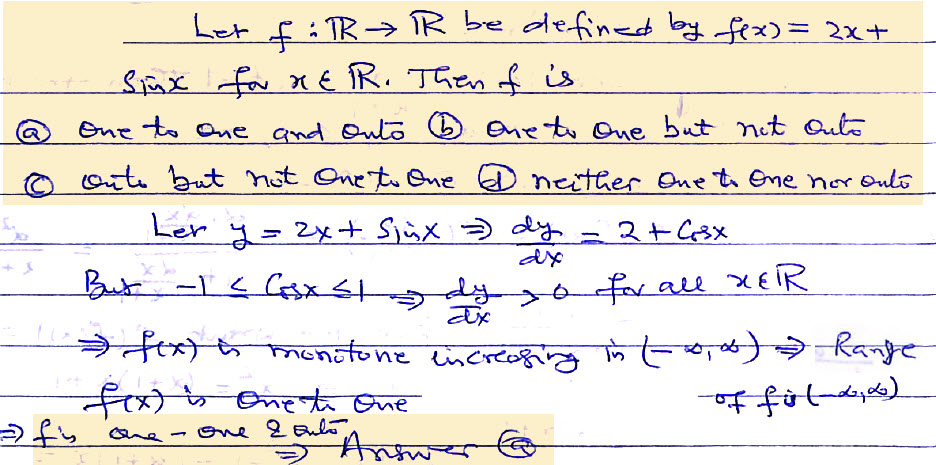 Let f : ℝ → ℝ be defined by f(x) = 2x +
Sinx for x ∈ ℝ. Then f is
ⓐ One to One and Onto ⓑ One to One but not Onto
ⓒ Onto but not One to One ⓓ neither One to One nor Onto
Let y = 2x + Sinx ⇒ dy/dx = 2 + Cosx
But -1 ≤ Cosx ≤ 1 ⇒ dy/dx > 0 for all x ∈ ℝ
⇒ f(x) is monotone increasing in (-∞, ∞) ⇒ Range
f(x) is One to One of f is (-∞, ∞)
⇒ f is one - one & onto
⇒ Answer ⓐ